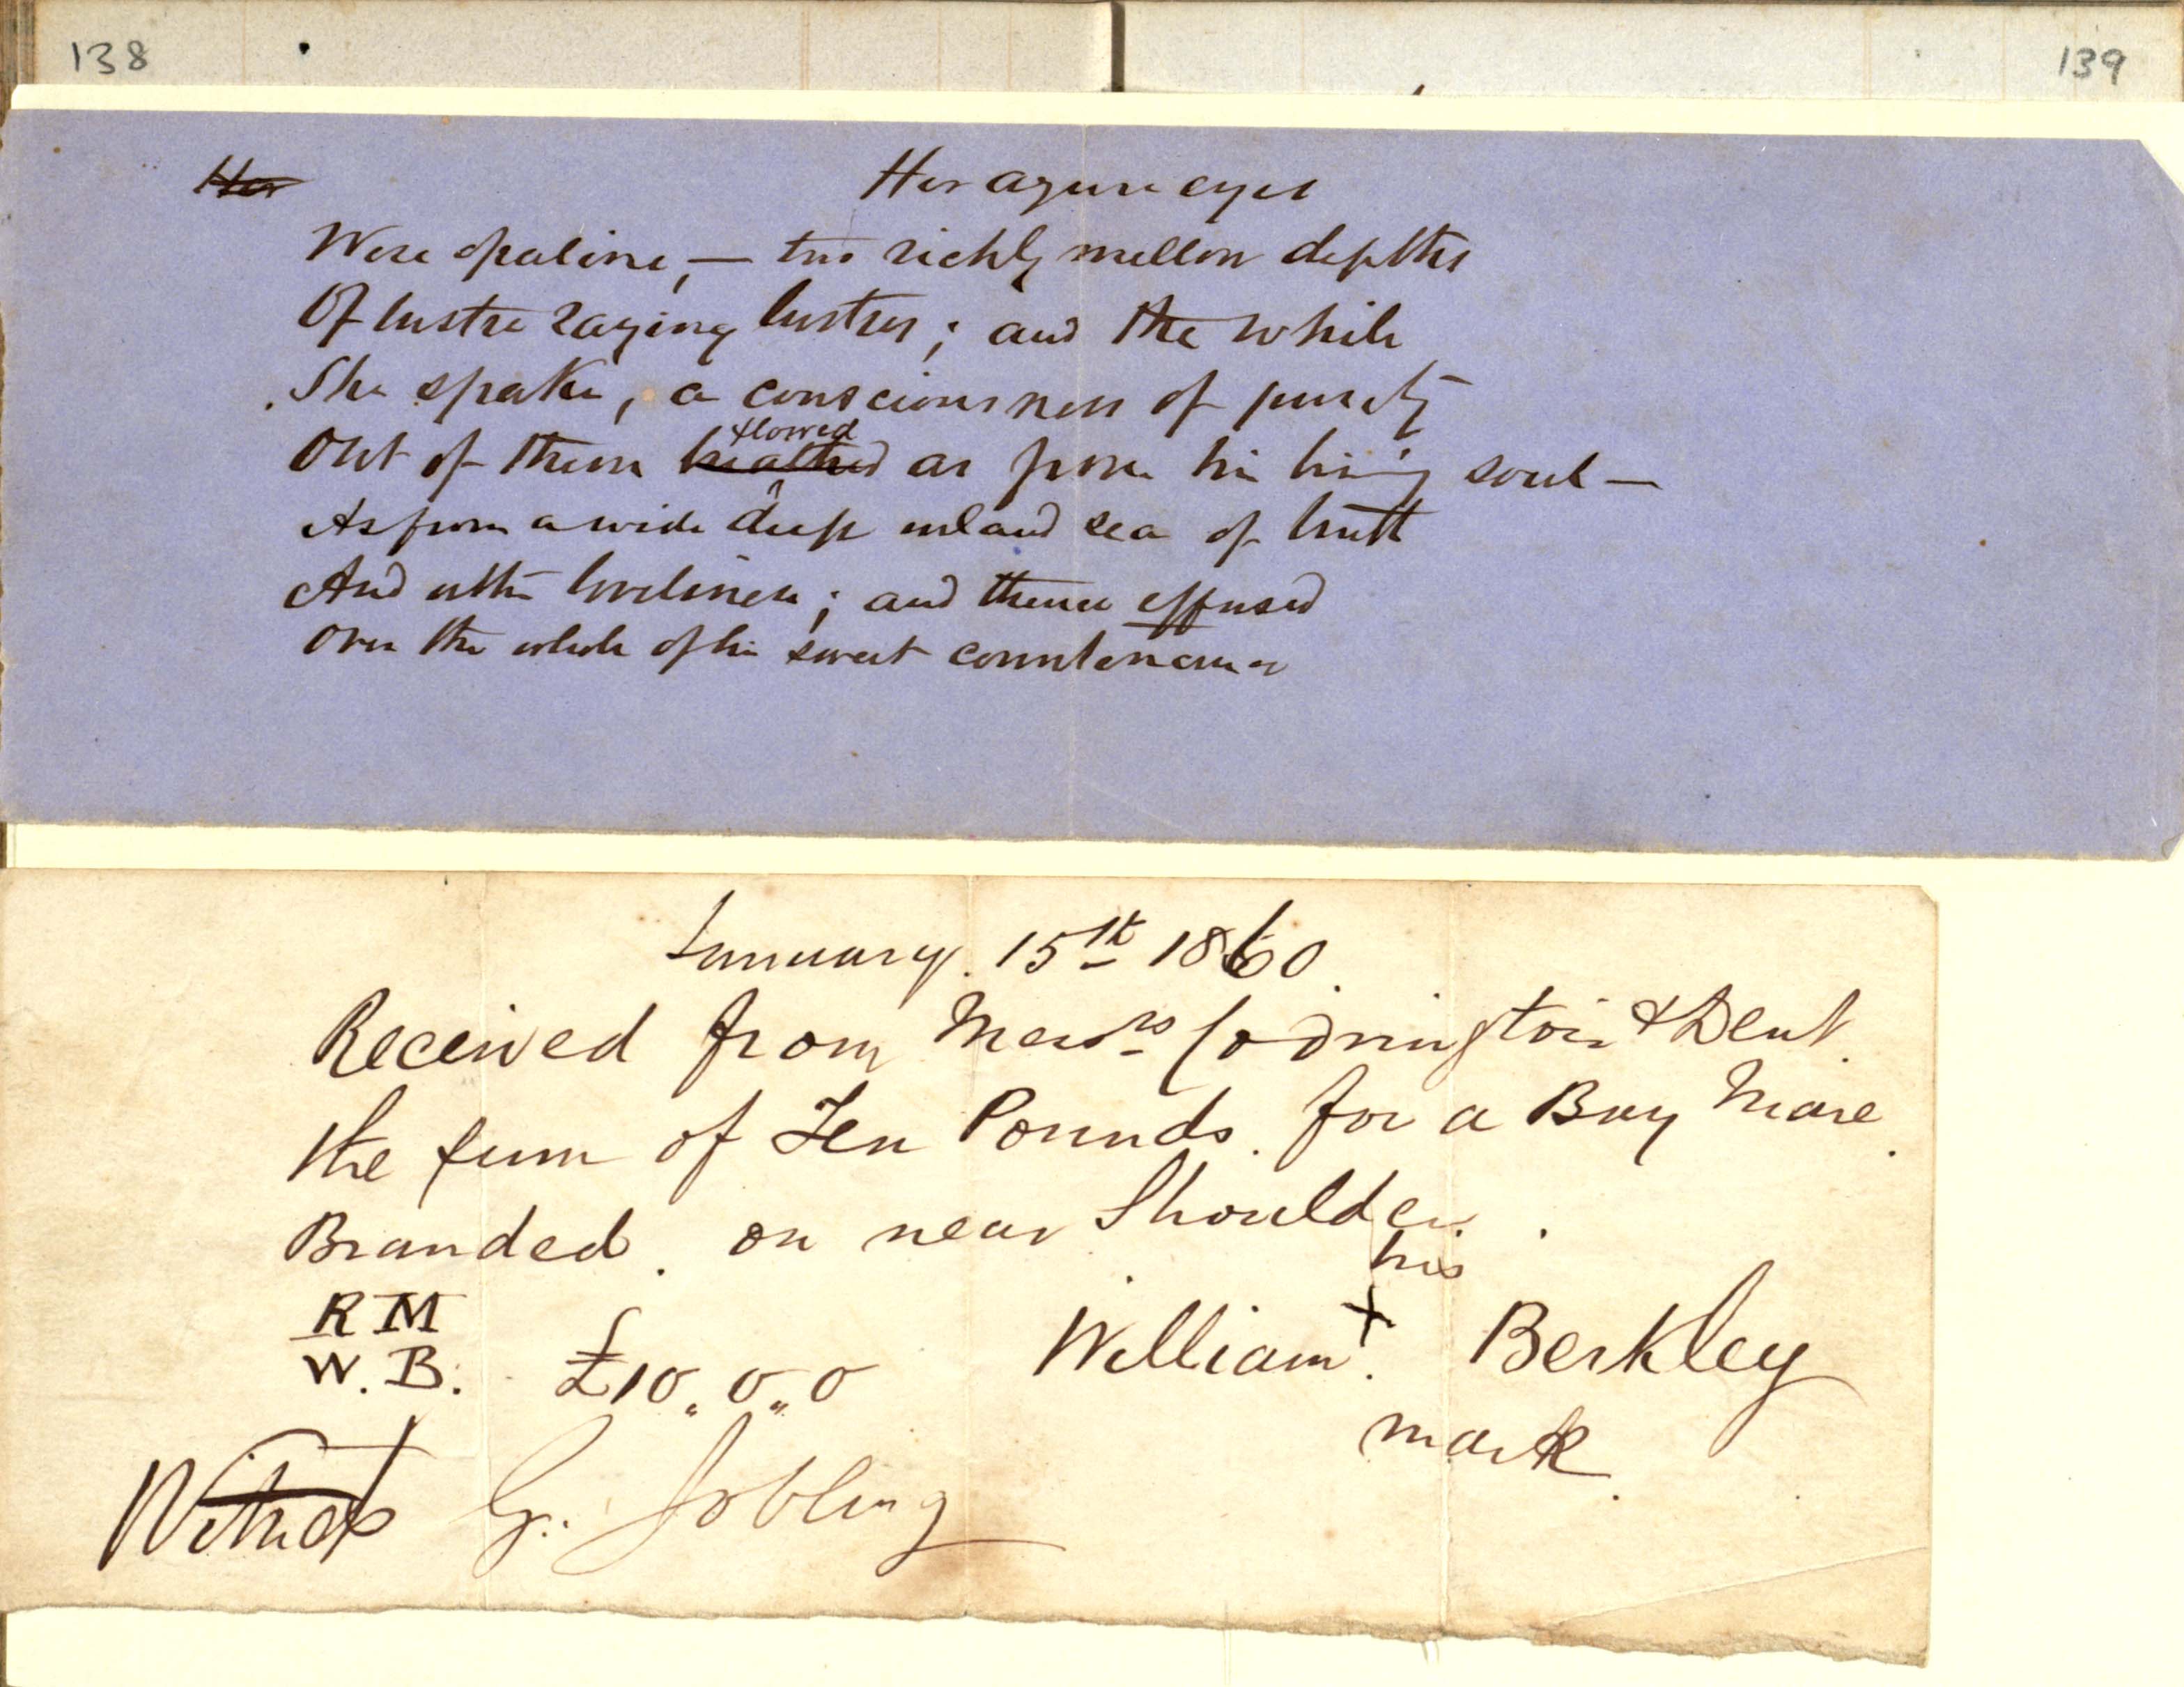 138
139
Her
Her azure eyes
Were opaline, — two richly mellow depths
Of lustre raying lustres; and the while
She spake, a consciousness of purity
flowed
Out of them breathed as from her living soul —
As from a wide deep inland sea of truth
And utter loveliness; and thence effused
Over the whole of her sweet countenance
January. 15th 1860.
Received from Messrs Codrington & Dent.
the sum of Ten Pounds. for a Bay Mare.
Branded. on near Shoulder.
his
RM
W. B. £10,, 0,, 0 William X Berkley
mark.
Witness G. Jobling